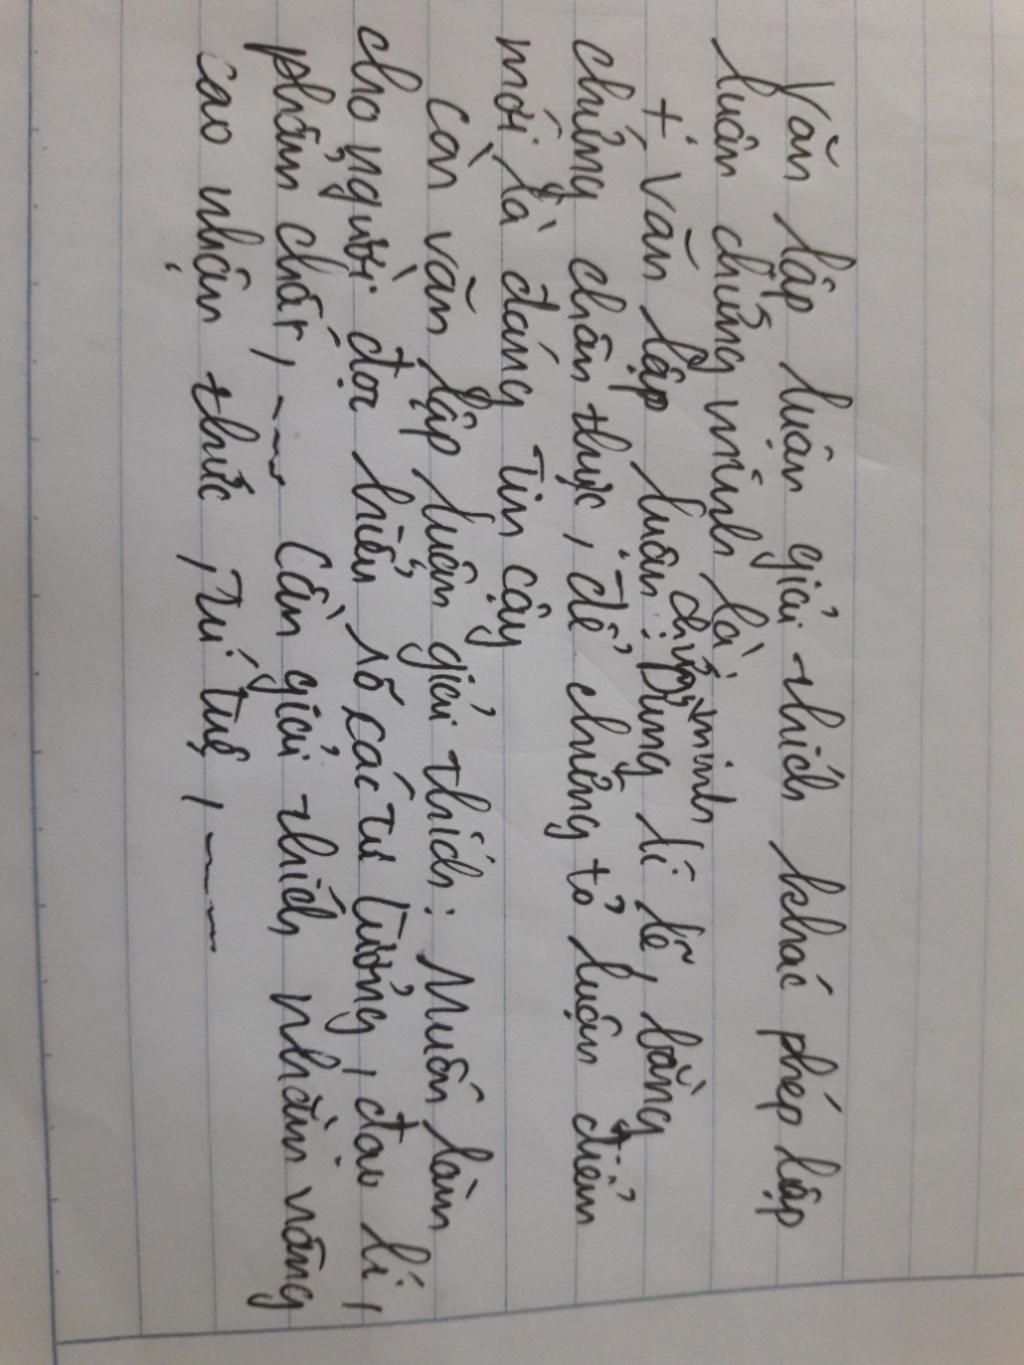 Văn lập luận giải thích khác phép lập
luận chứng minh là
+ Văn lập luận chứng minh: Dùng lí lẽ, bằng
chứng chân thực, để chứng tỏ luận điểm
mới là đáng tin cậy
Còn văn lập luận giải thích: Muốn làm
cho người đọc hiểu rõ các tư tưởng, đạo lí,
phẩm chất, ~~~ Cần giải thích nhằm nâng
cao nhận thức, trí tuệ, ~~~